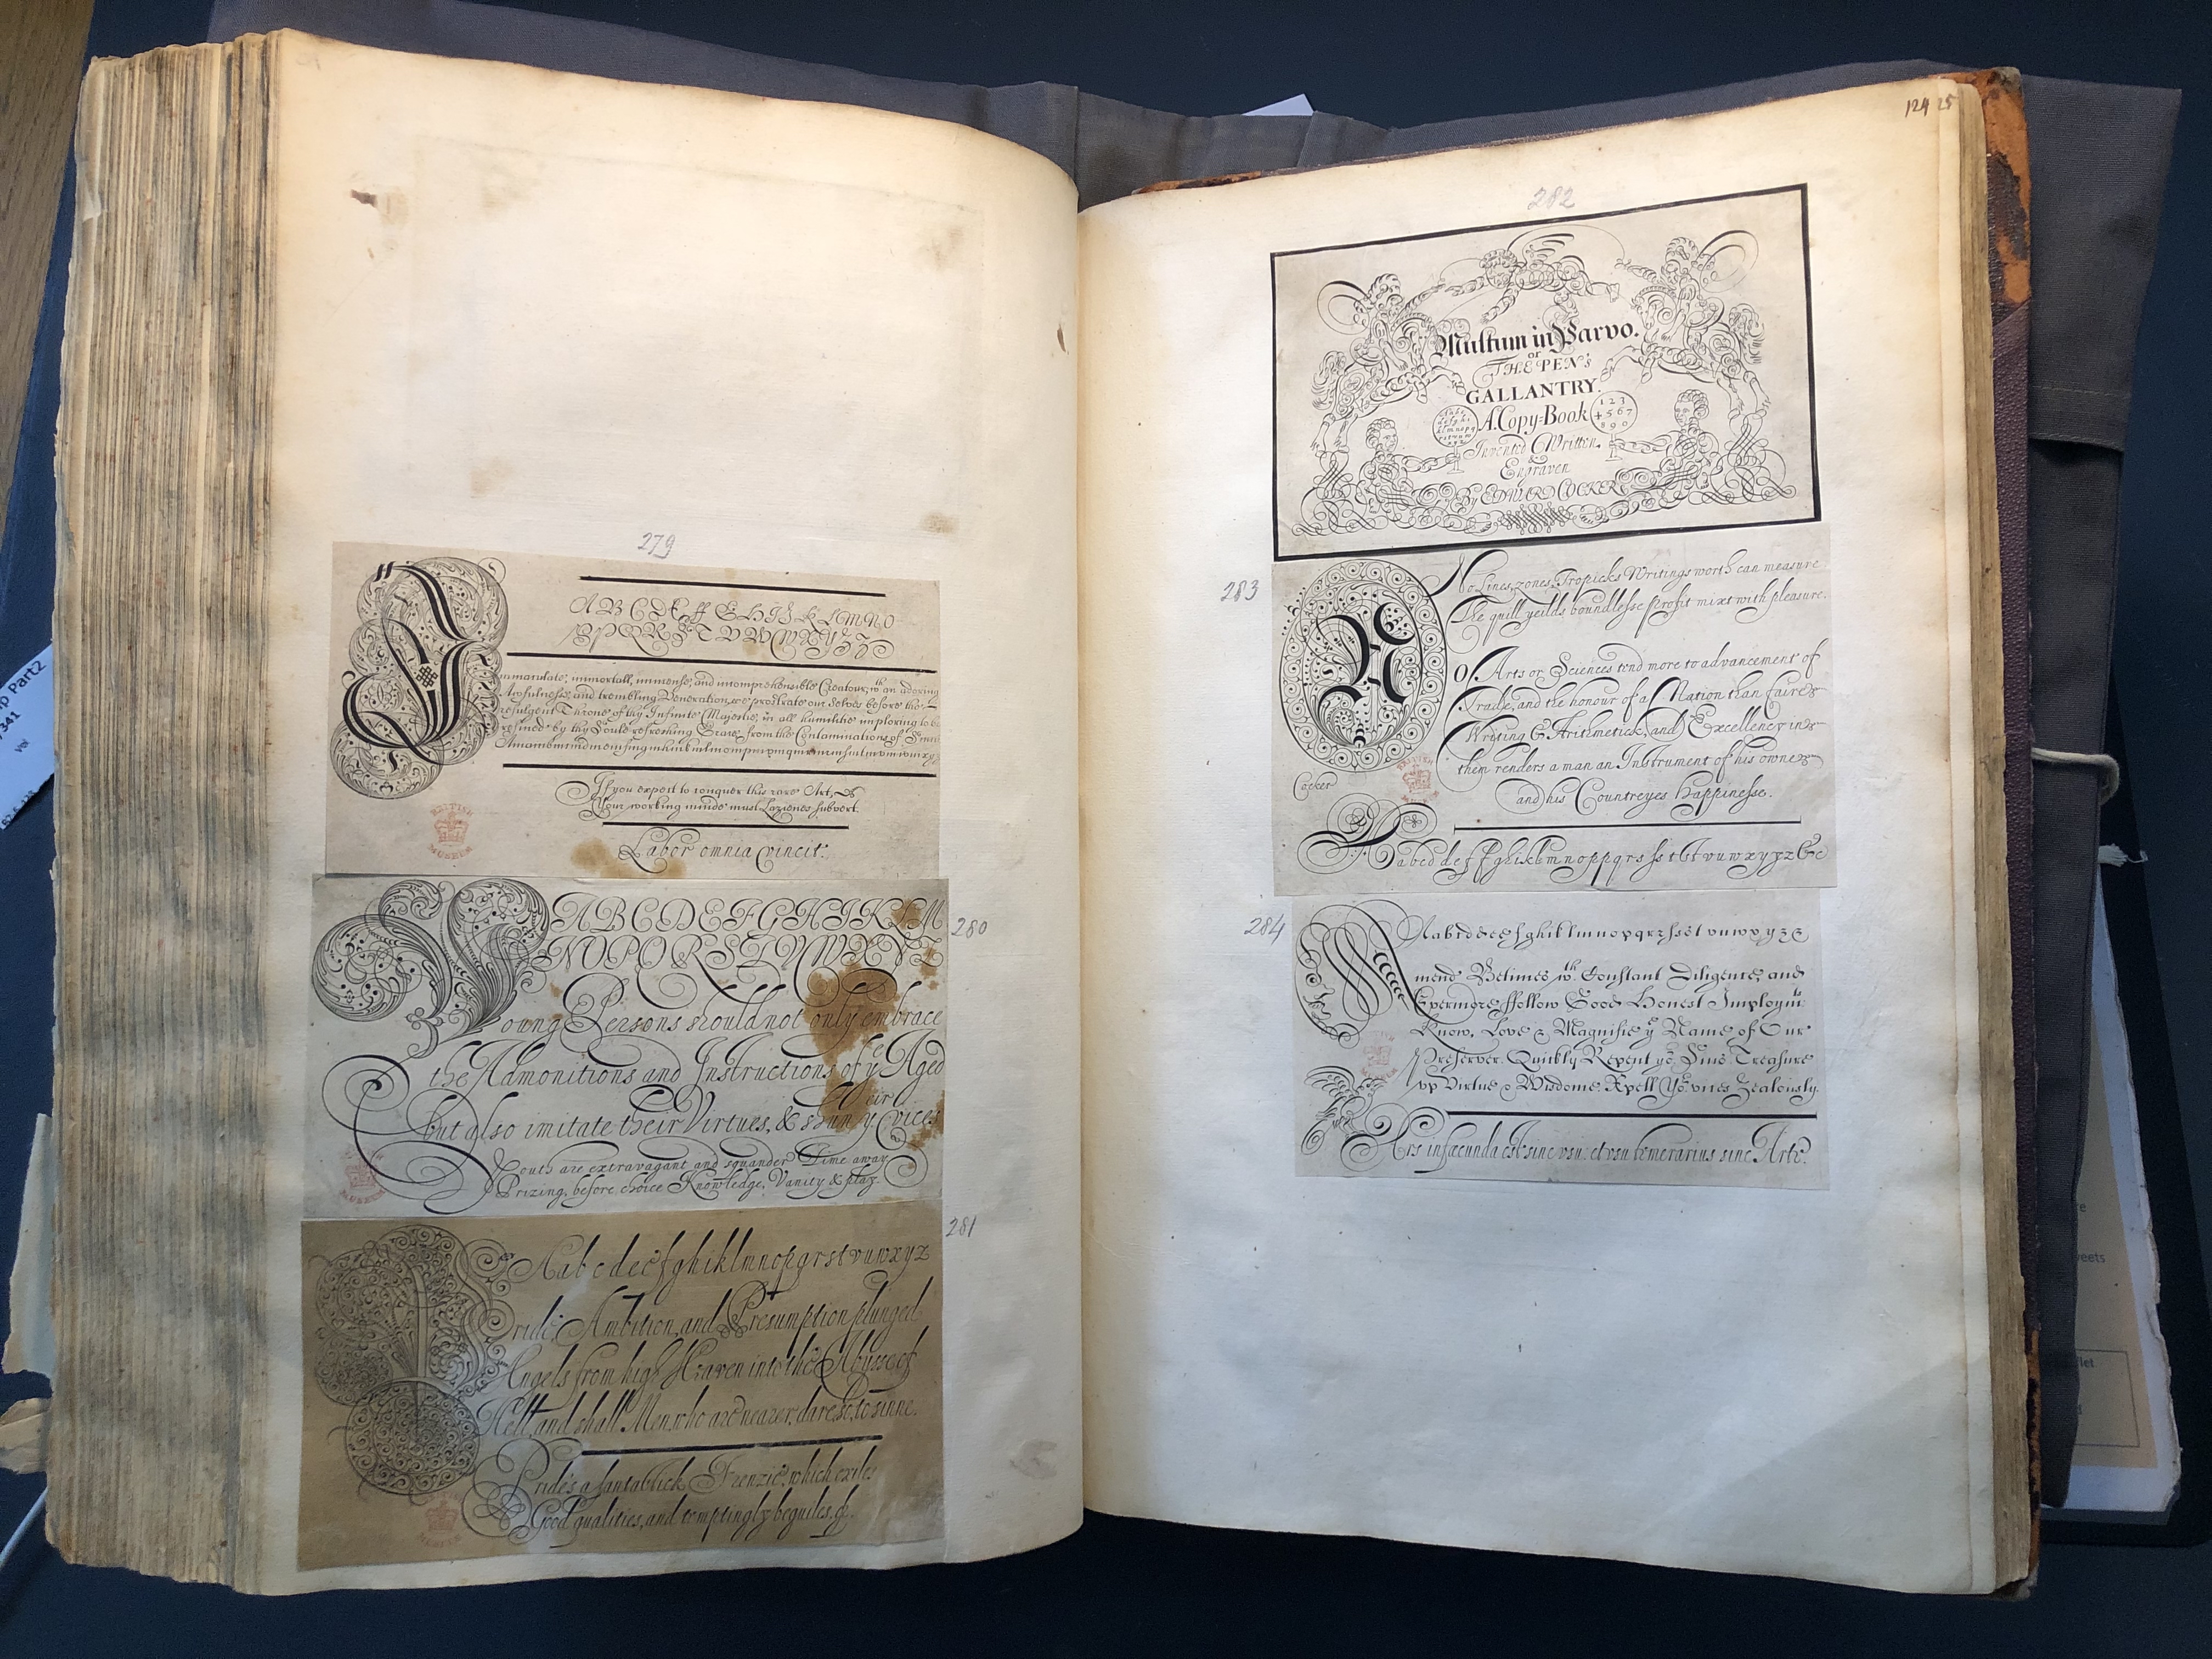 279
A B C D E ff G H I J K L M N O
P Q R S T V W X Y Z
mmaculate, immortall, immense, and incomprehensible Creatour, wth an adoring
Awfulness, and trembling Veneration, we prostrate our selves before the
refulgent Throne of thy Infinite Majestie, in all humilitie imploring to be
refined by thy Soule refreshing Grace from the Contaminations of
If you expect to conquer this rare Art,
Your working minde must Lazienes subvert.
Labor omnia vincit.
BRITISH MUSEUM
280
A B C D E F G H I K L M
N O P Q R S T V W X Y Z
Young Persons should not only embrace
the Admonitions and Instructions of ye Aged
but also imitate their Virtues, & shun their Vices
Youth are extravagant and squander Time away
Prizing, before choice Knowledge, Vanity & play.
281
A a b c d e e f g h i k l m n o p q r s t v u w x y z
Pride, Ambition, and Presumption plunged
Angels from high Heaven into the Abysse of
Hell, and shall Men, who are nearer, dare so, to sinne.
Pride's a fantastick Frenzie, which exiles
Good qualities, and temptingly beguiles, &.
124 25
282
Multum in Parvo.
or
THE PEN'S
GALLANTRY.
A Copy=Book
1 2 3
4 5 6 7
8 9 0
Invented Written
&
Engraven
By EDWARD COCKER
283
No Lines, zones, Tropicks Writings worth can measure
The quill yeilds boundlesse profit mixt with pleasure.
NO Arts or Sciences tend more to advancement of
Trade, and the honour of a Nation than faire
Writing & Arithmetick, and Excellency in
them renders a man an Instrument of his owne
and his Countreyes happinesse.
Cocker
BRITISH MUSEUM
A a b c d e f f g h i k l m n o p p q r s ſs t v u w x y z &c
284
A a b c d e f g h i k l m n o p q r s t v u w x y z
Amend Betimes wth Constant Diligence, and
Evermore ffollow Good Honest Imploymts
Know, Love & Magnifie ye Name of Our
Preserver. Quickly Repent yor Sins. Treasure
vp Virtue & Wisdome. Xpell Yor vices Zealously.
Ars infæcunda est sine vsu: et vsu temerarius sine Arte.